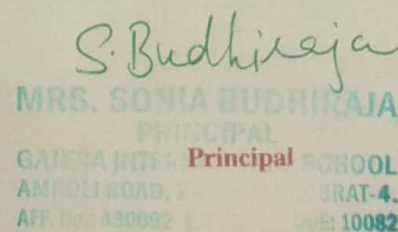 S. Budhiraja
MRS. SONIA BUDHIRAJA
PRINCIPAL
Principal
GAJERA SCHOOL
ROAD, RAT-4.
AFF. 430092 10082